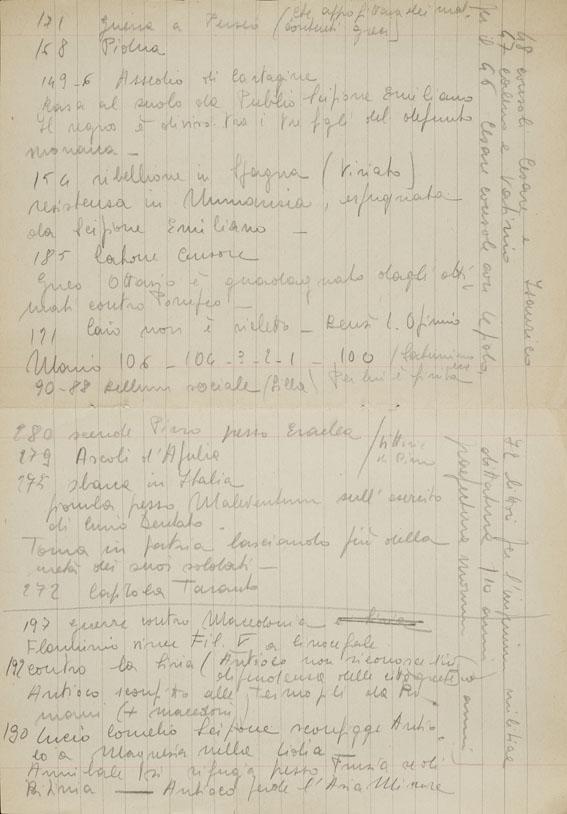 171 guerra a Perseo (che approfittava dei mal-
contenti greci)
168 Pidna
149-6 Assedio di Cartagine
Rasa al suolo da Publio Scipione Emiliano
Il regno è diviso tra i tre figli del defunto
monarca —
154 ribellione in Spagna (Viriato)
resistenza in Numanzia, espugnata
da Scipione Emiliano —
185 Catone Censore
Gneo Ottavio è guadagnato dagli otti
mati contro Pompeo —
121 Caio non è rieletto — Bensì L. Opimio
Mario 106 - 104 - 3 - 2 - 1 - 100 (Saturnino
90-88 Bellum sociale (Silla) Per lui è finita
280 scende Pirro presso Eraclea
279 Ascoli d'Apulia
275 sbarca in Italia
piomba presso Maleventum sull'esercito
di Curio Dentato.
Torna in patria lasciando più della
metà dei suoi soldati —
272 Capitola Taranto
(Vittorie
di Pirro
197 guerre contro Macedonia
Flaminino vince Fil. V a Cinocefale
192 contro la Siria (Antioco non riconosce l'in
dipendenza delle città greche)
Antioco sconfitto alle Termopili da Ro
mani (+ macedoni)
190 Lucio Cornelio Scipione sconfigge Antio-
co a Magnesia nella Lidia —
Annibale si rifugia presso Prusia re di
Bitinia — Antioco perde l'Asia Minore
48 consoli Cesare e Isaurico
47 Caleno e Vatinio
Per il 46 Cesare console con Lepido,
per l'imperium militiae
dittatura per 10 anni
praefectura morum